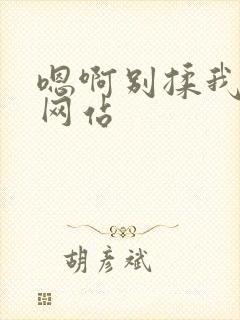 嗯啊别揉我
网佔
胡彦斌